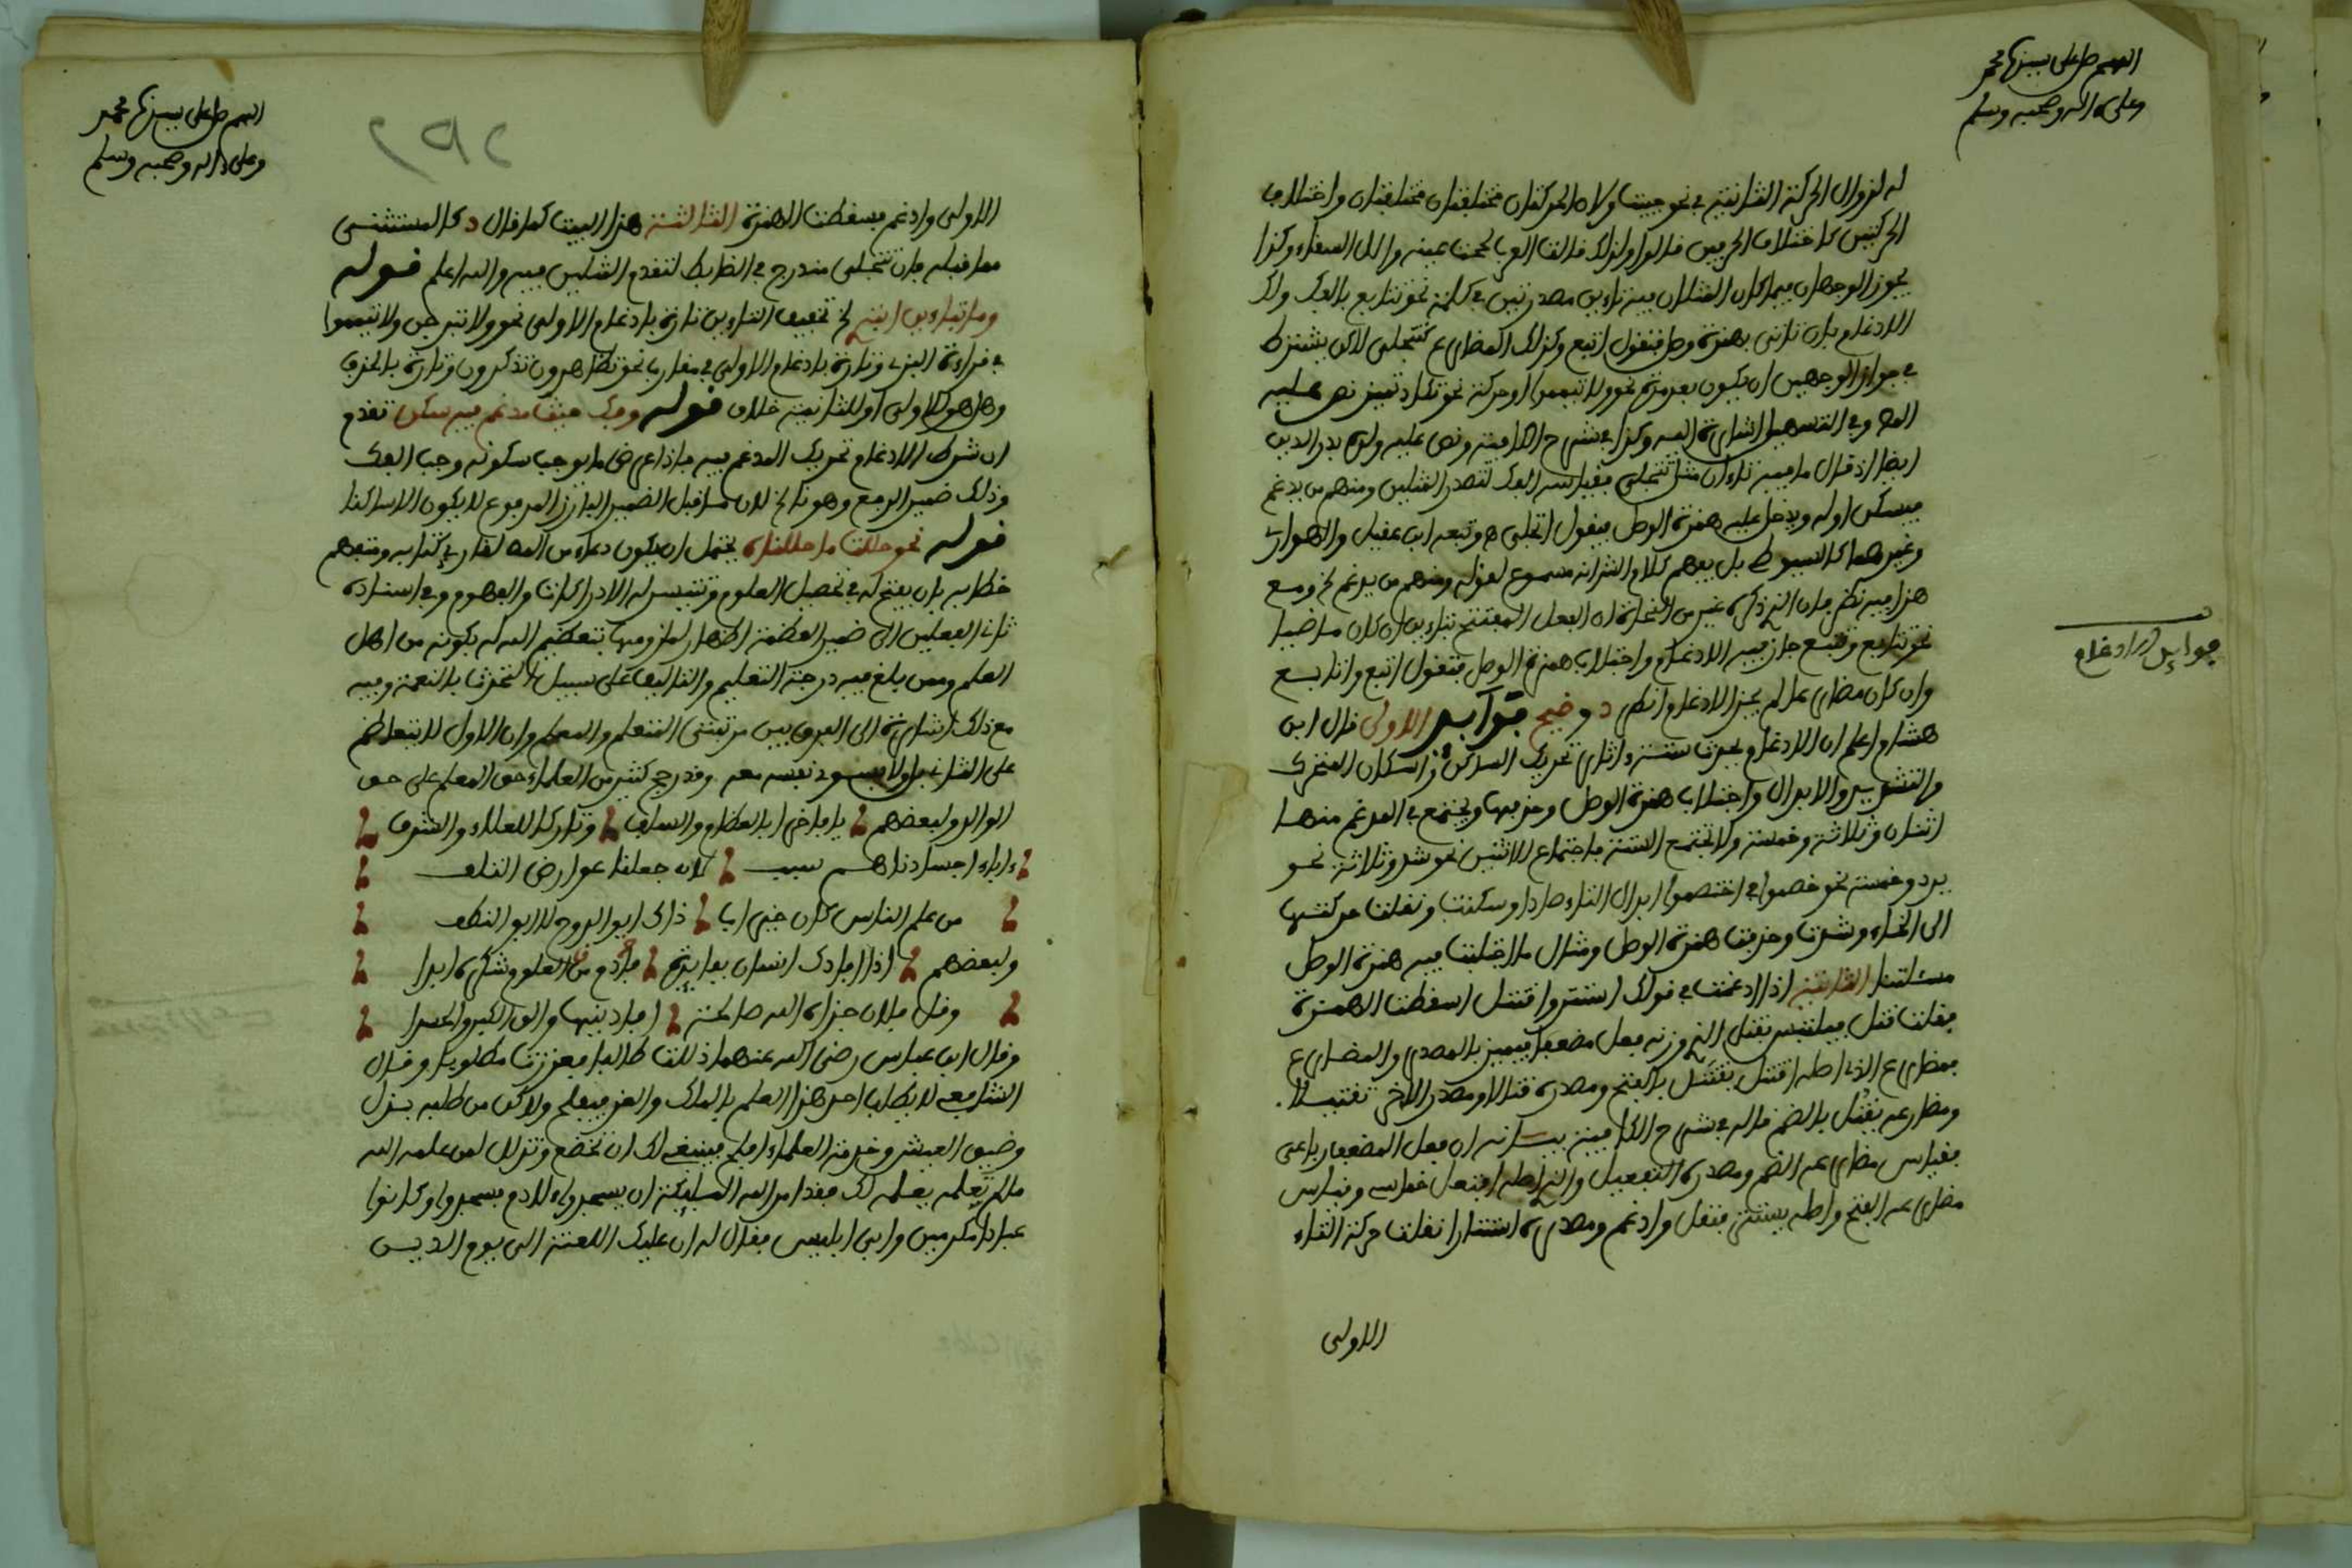 اللهم صل على سيدنا محمد
وعلى ءاله وصحبه وسلم
له لزوال الحركة الثانية في نحو حييت ولان الحركتان مختلفتان واختلاف
الحركتين كاختلاف الحرفين قالوا ولذلك
يجوز الوجهان فيما كان المثلان فيه تاءين مصدرتين في كلمة نحو تتابع بالفك ولك
الادغام بان تاتي بهمزة وصل فتقول اتبع وكذلك المضارع كتتجلى لاكن يشترط
في جواز الوجهين ان يكون بعد مدة نحو ولا تيمموا او حركة نحو تكاد تميز نص عليه
المص وفي التسهيل اشارة اليه وكذا في شرح الكافية ونص عليه ولده بدر الدين
ايضا اذ قال ما فيه تاءان مثل تتجلى فقياسه الفك لتصدر المثلين ومنهم من يدغم
فيسكن اوله ويدخل عليه همزة الوصل فيقول اتجلى ه وتبعه ابن عقيل والهواري
وغيرهما كالسيوطي بل يفهم كلام الشرانه مسموع لقوله ومنهم من يدغم الخ ومع
هذا فيه نظر فان الذي ذكره غير من النحاة ان الفعل المفتتح بتاءين ان كان ماضيا
نحو تتابع وتتبع جاز فيه الادغام واجتلاب همزة الوصل فتقول اتبع واتابع
وان كان مضارعا لم يجز الادغام انظر د وضيح فوائد الاولى قال ابن
فوايد الادغام
هشام اعلم ان الادغام يحدث ستة ءاثار تحريك الساكن واسكان المتحرك
والتشديد والابدال واجتلاب همزة الوصل وحذفها ويجتمع في المدغم منها
اثنان وثلاثة وخمسة ولا تجتمع الستة فاجتماع الاثنين نحو شد وثلاثة نحو
يرد وخمسة نحو خصموا في اختصموا ابدال التاء صادا وسكنت ونقلت حركتها
الى الخاء وشددت وحذفت همزة الوصل ومثال ما اجتلبت فيه همزة الوصل
مسئلتنا الثانية اذا ادغمت في قولك استتر واقتتل اسقطت الهمزة
فقلت قتل فيلتبس بقتل الذي وزنه فعل مضعفا فيميز بالمصدر والمضارع
فمضارع الذي اصله اقتتل يقتل بالفتح ومصدره قتالا ومصدر الاخر تقتيلا
ومضارعه يقتل بالضم قاله في شرح الكافية بيانه ان فعل المضعف رباعي
فقياس مضارعه الضم ومصدره التفعيل والذي اصله افتعل خماسي وقياس
مضارعه الفتح واصله يستتر فنقل وادغم ومصدره استتارا نقلت حركة التاء
الاولى
اللهم صل على سيدنا محمد
وعلى ءاله وصحبه وسلم
الاولى وادغم فسقطت الهمزة الثالثة هذا البيت كما قال د كالمستثنى
مما قبله فان تتجلى مندرج في الضابط لتقدم المثلين فيه والله اعلم قوله
وما بتاءين ابتدي الخ تخفيف التاءين تارة بادغام الاولى نحو ولا تبرجن ولا تيمموا
في قراءة البزي وتارة بادغام الاولى في مقارب نحو تظاهرون تذكرون وتارة بالحذف
وهل هو للاولى او للثانية خلاف قوله وفك حيث مدغم فيه سكن تقدم
ان شرط الادغام تحريك المدغم فيه فاذا عرض ما يوجب سكونه وجب الفك
وذلك ضمير الرفع وهو تا الخ لان ما قبل الضمير البارز المرفوع لا يكون الا ساكنا
قوله نحو حللت ما حللنه يحتمل ان يكون دعاء من المص لقارئ كتابه ومتفهم
خطابه بان يفتح له في تحصيل العلوم وتتيسر له الادراكات والفهوم وفي اسناده
ثاني الفعلين الى ضمير العظمة اظهار لملزومها بتعظيم الله له بكونه من اهل
العلم وممن بلغ فيه درجة التعليم والتاليف على سبيل التحدث بالنعمة وفيه
مع ذلك اشارة الى الفرق بين مرتبتي المتعلم والمعلم وان الاول لا يتعاظم
على الثاني ولا يسود نفسه معه وقد رجح كثير من العلماء حق المعلم على حق
الوالد ولبعضهم يا فاخرا بالعظام والسلف وتاركا للعلاء والشرف
ءاباء اجسادنا هم سبب لان جعلنا عوارض التلف
من علم الناس كان خير ابا ذاك ابو الروح لا ابو النطف
ولبعضهم اذا افادك انسان بفائدة فادم من العلوم شكره ابدا
وقل فلان جزاه الله صالحة افادنيها والق الكبر والحسدا
وقال ابن عباس رضي الله عنهما ذللت طالبا فعززت مطلوبا وقال
الشافعي لا يطلب احد هذا العلم بالملك والعز فيفلح ولاكن من طلبه بذل
وضيق العيش وخدمة العلماء افلح فينبغي لك ان تخضع وتذلل لمن علمه الله
ما لم يعلمه يعلمه لك فقد امر الله الملئكة ان يسجدوا لئادم فسجدوا وكانوا
عبادا مكرمين وابى ابليس فقال له ان عليك اللعنة الى يوم الدين